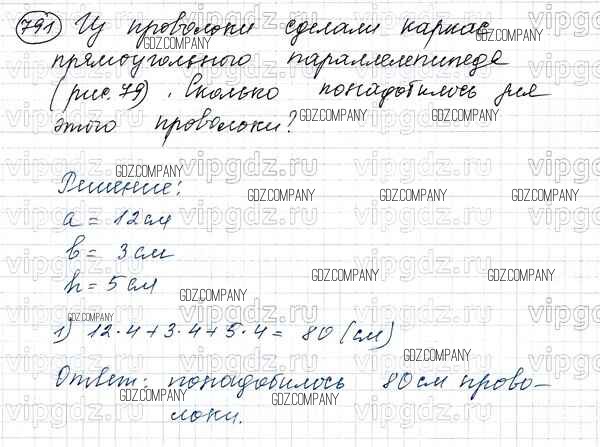 791 Из проволоки сделали каркас
прямоугольного параллелепипеда
(рис. 79). Сколько понадобилось для
этого проволоки?
Решение:
a = 12 см
b = 3 см
h = 5 см
1) 12·4+3·4+5·4 = 80 (см)
Ответ: понадобилось 80 см прово-
локи.
GDZ.COMPANY
vipgdz.ru